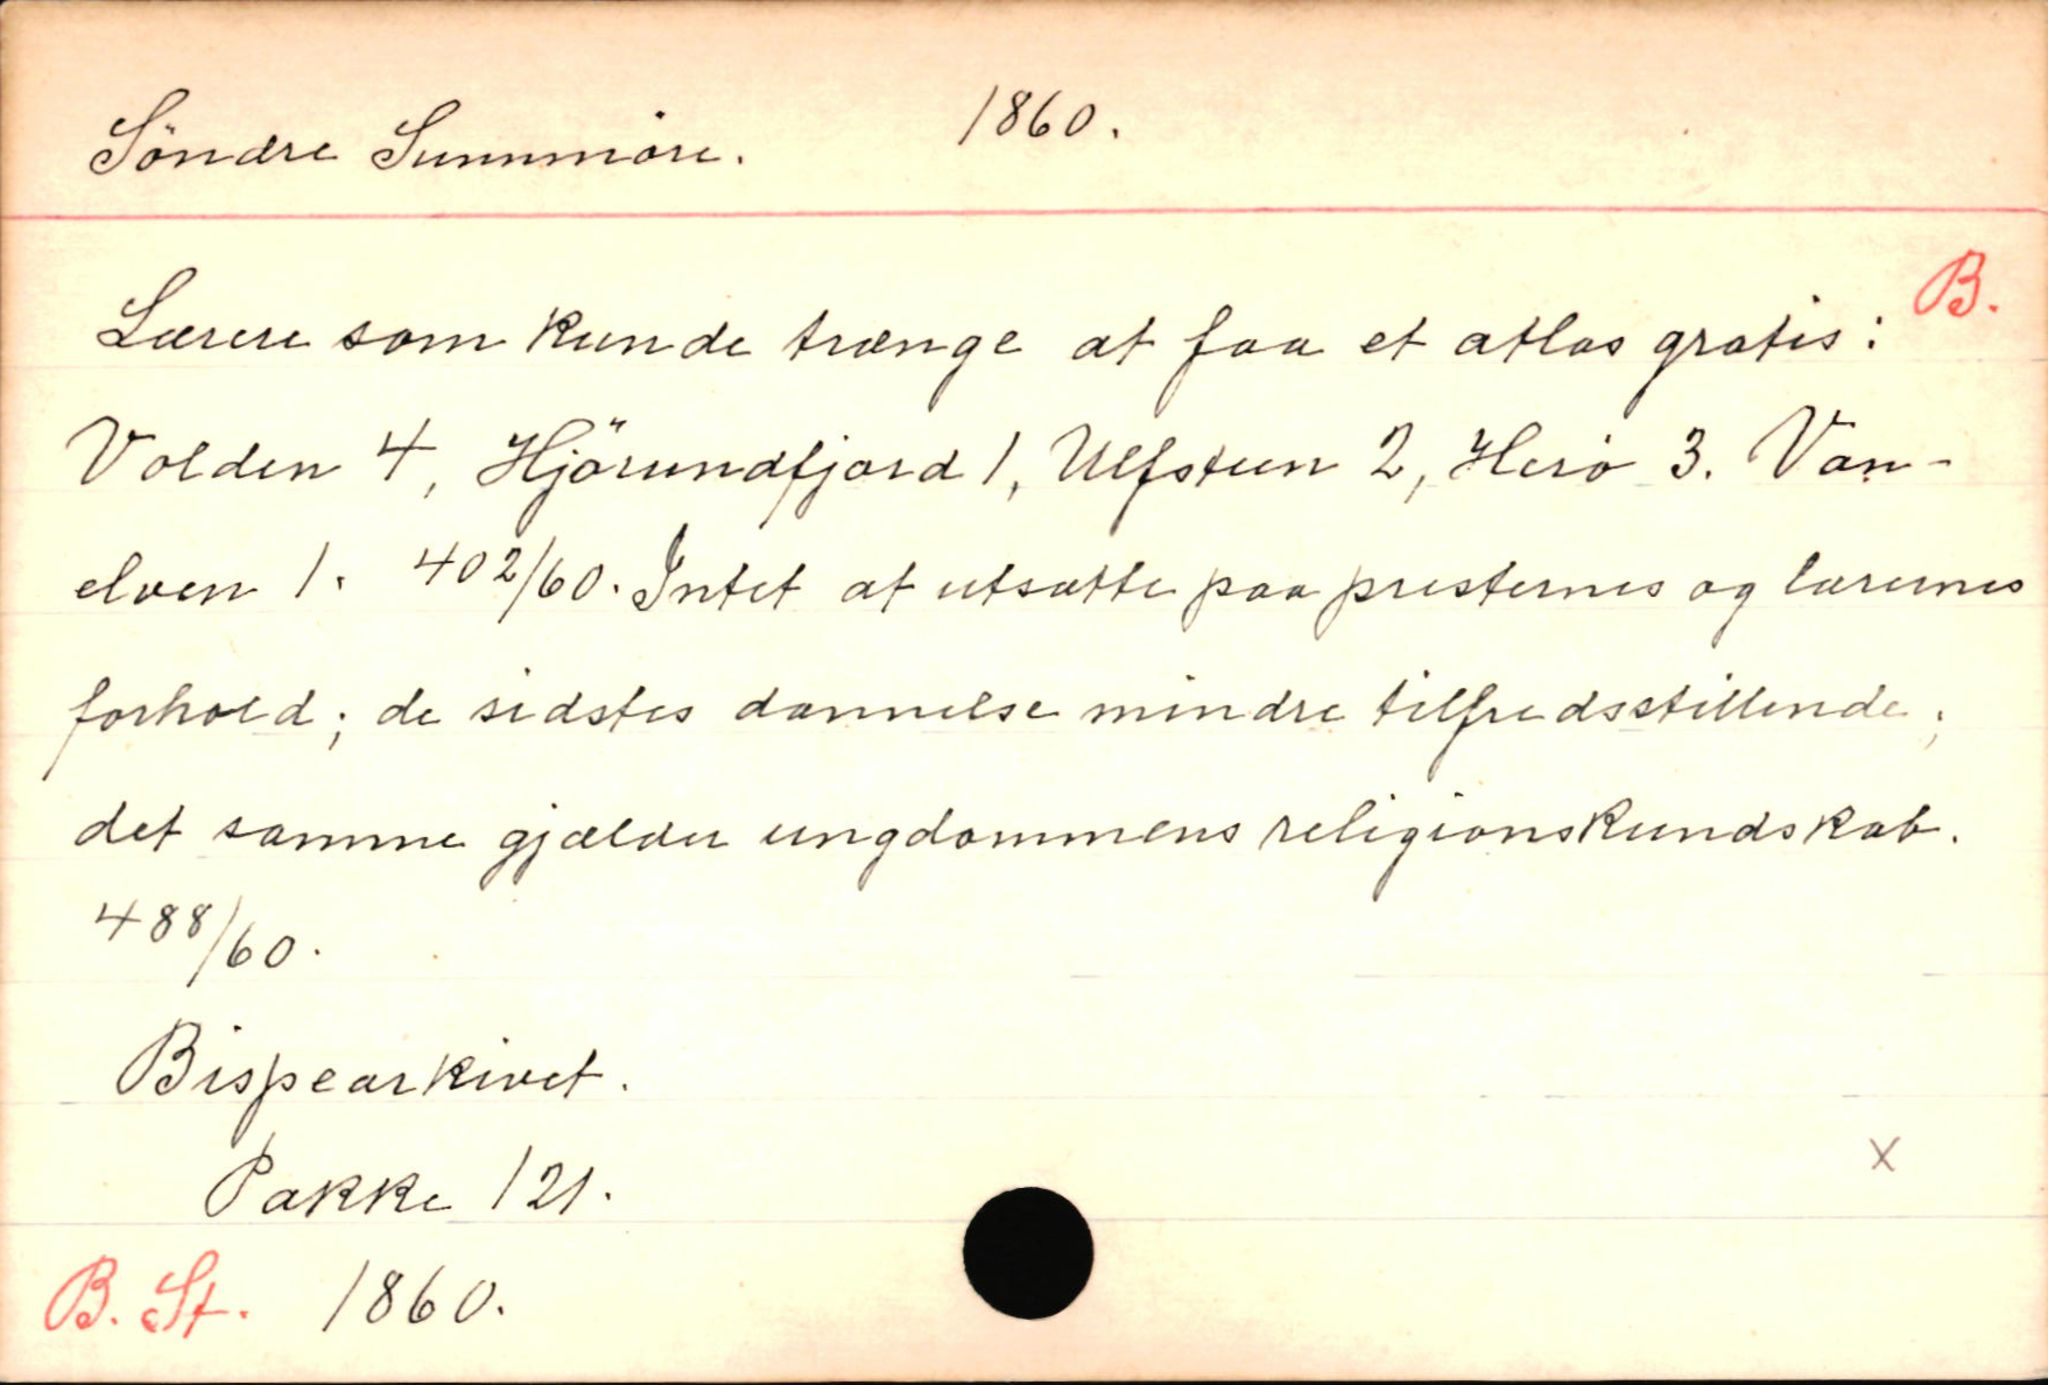 Söndre Sunnmöre. 1860.
B.
Lærere som kunde trænge at faa et atlas gratis:
Volden 4, Hjörundfjord 1, Ulfsteen 2, Herö 3. Van-
elven 1. 402/60. Intet at utsætte paa presternes og lærernes
forhold; de sidstes dannelse mindre tilfredsstillende;
det samme gjælder ungdommens religionskundskab.
488/60.
Bispearkivet.
Pakke 121.
x
B. St. 1860.